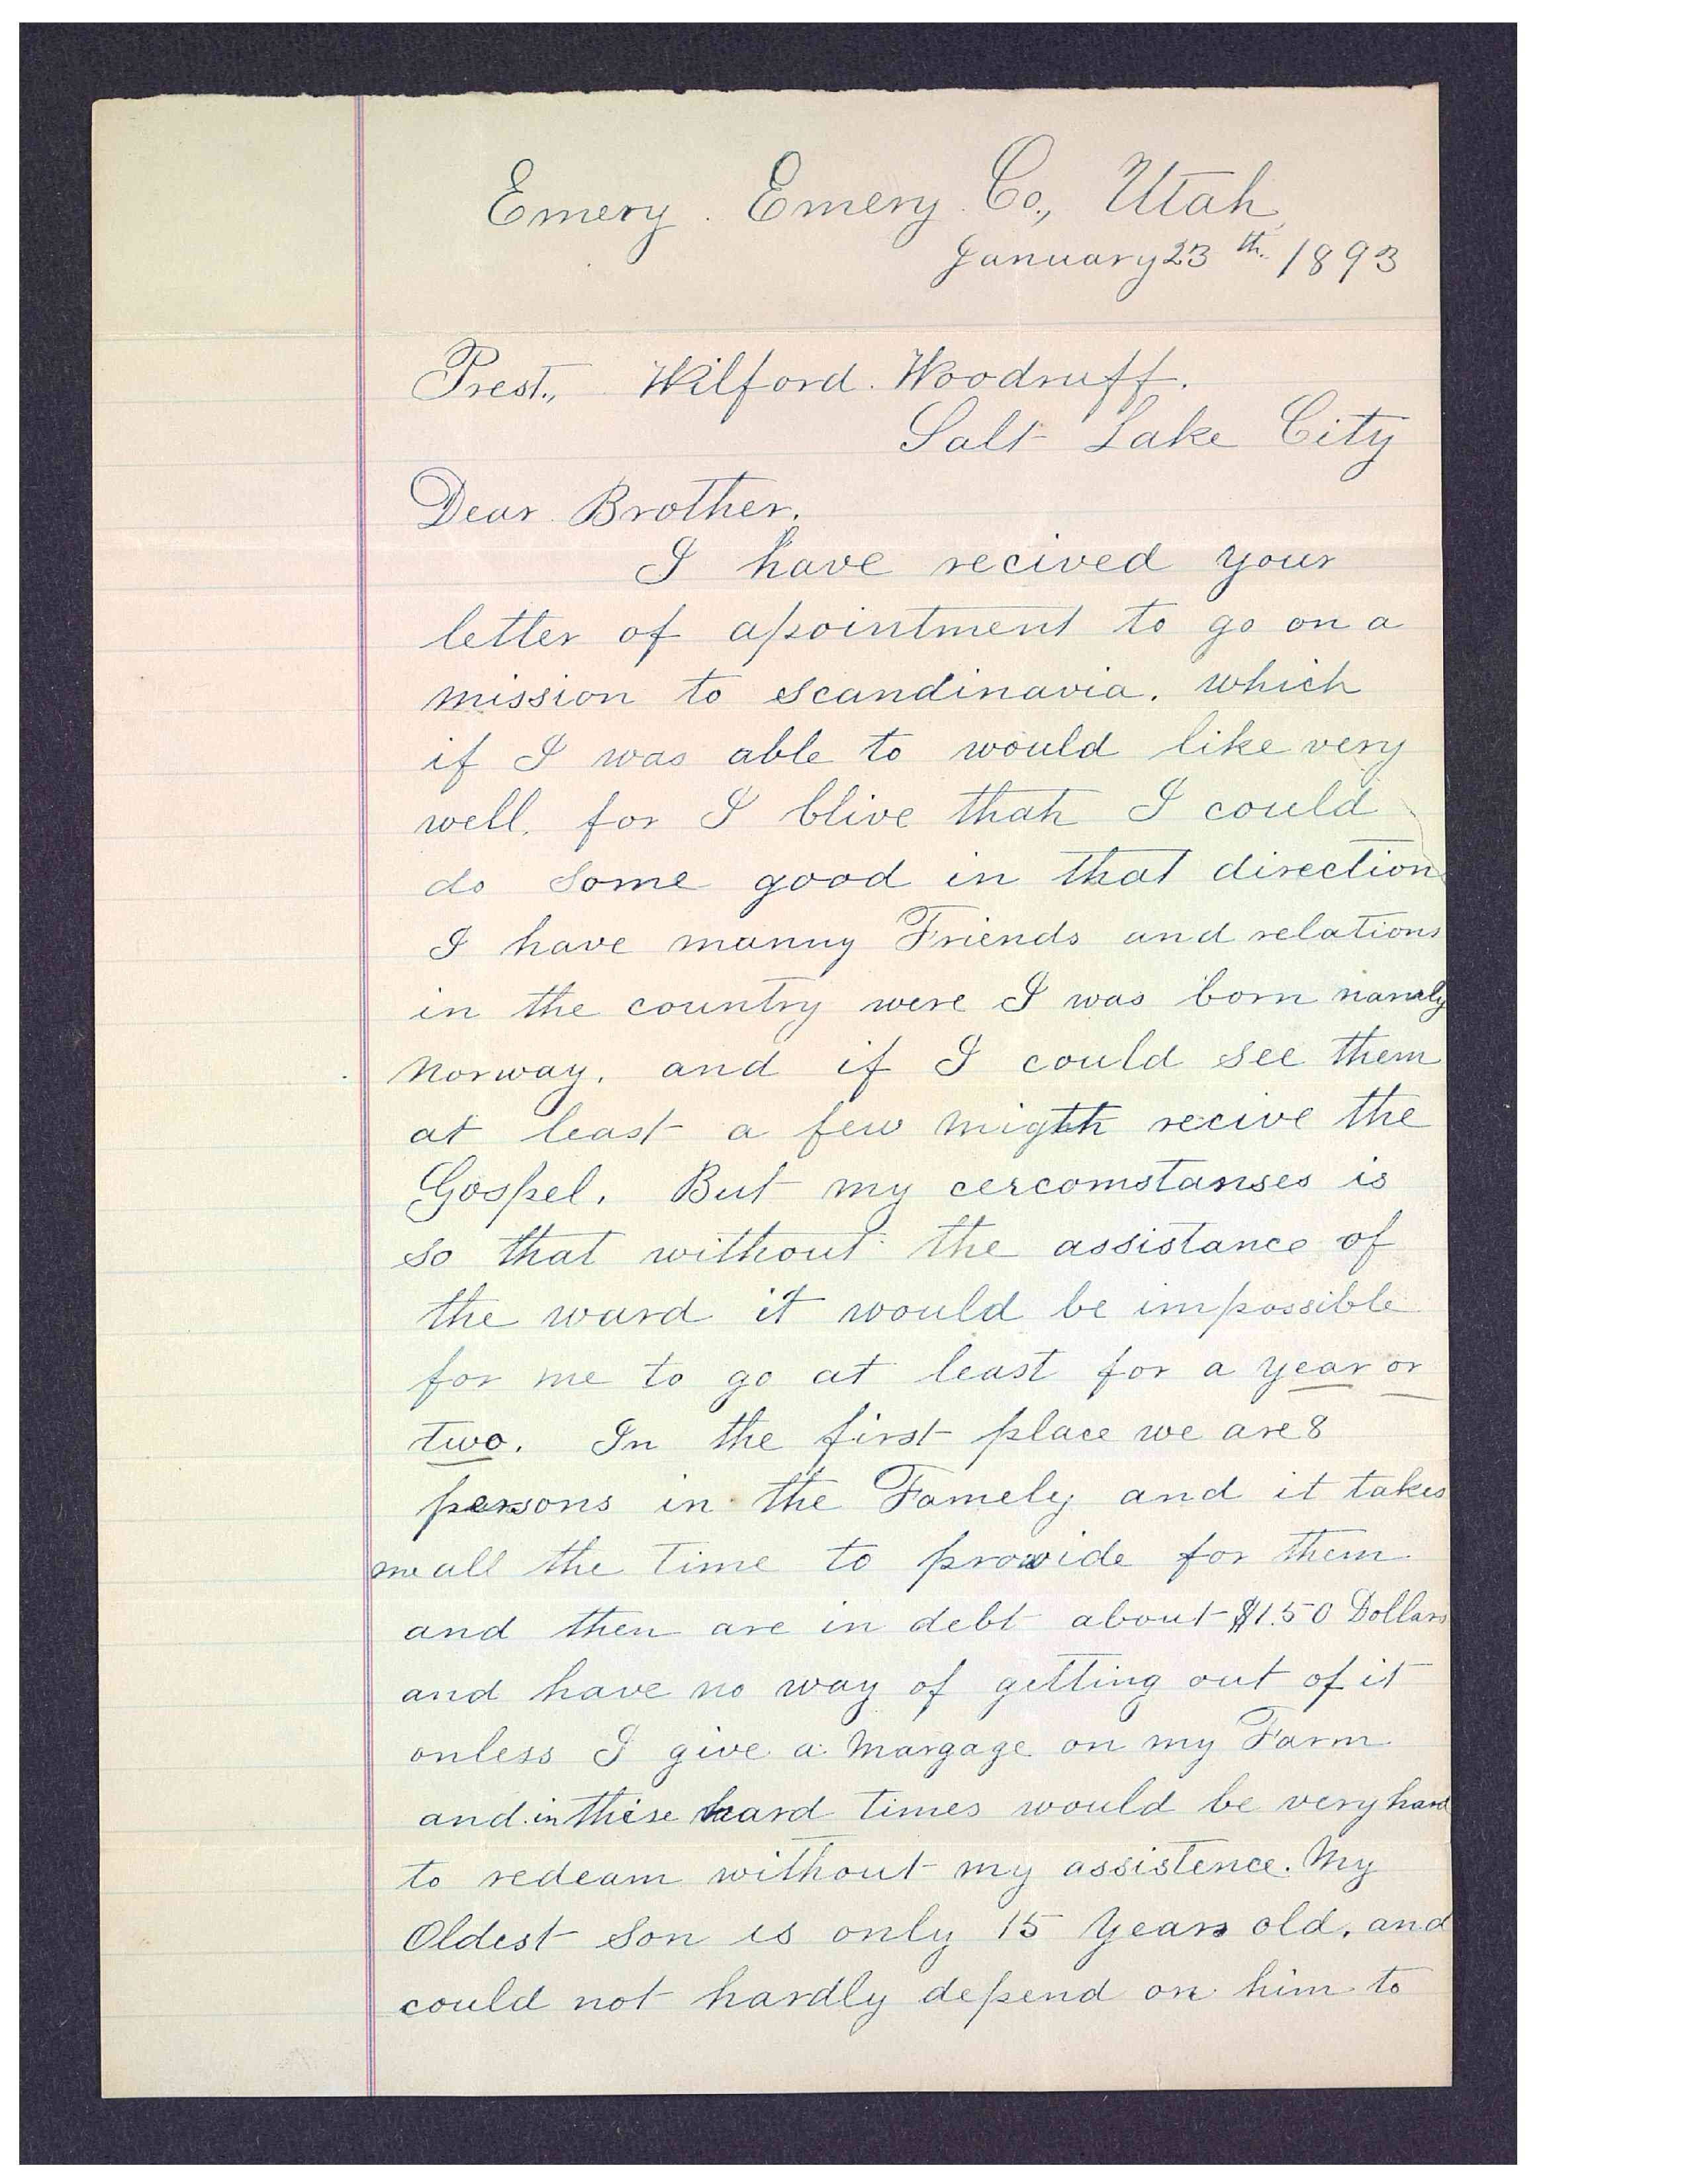 Emery. Emery Co., Utah
January 23th. 1893
Prest., Wilford. Woodruff.
Salt Lake City
Dear Brother.
I have recived your
letter of apointment to go on a
mission to scandinavia. which
if I was able to would like very
well. for I blive thath I could
do some good in that direction
I have manny Friends and relations
in the country were I was born namely
Norway. and if I could see them
at least a few migth recive the
Gospel. But my cercomstanses is
so that without the assistance of
the ward it would be impossible
for me to go at least for a year or
two. In the first place we are 8
persons in the Famely and it takes
me all the time to prowide for them
and then are in debt about $1.50 Dollars
and have no way of getting out of it
onless I give a Margage on my Farm
and in these hard times would be very hard
to redeam without my assistence. My
Oldest Son is only 15 years old. and
could not hardly depend on him to